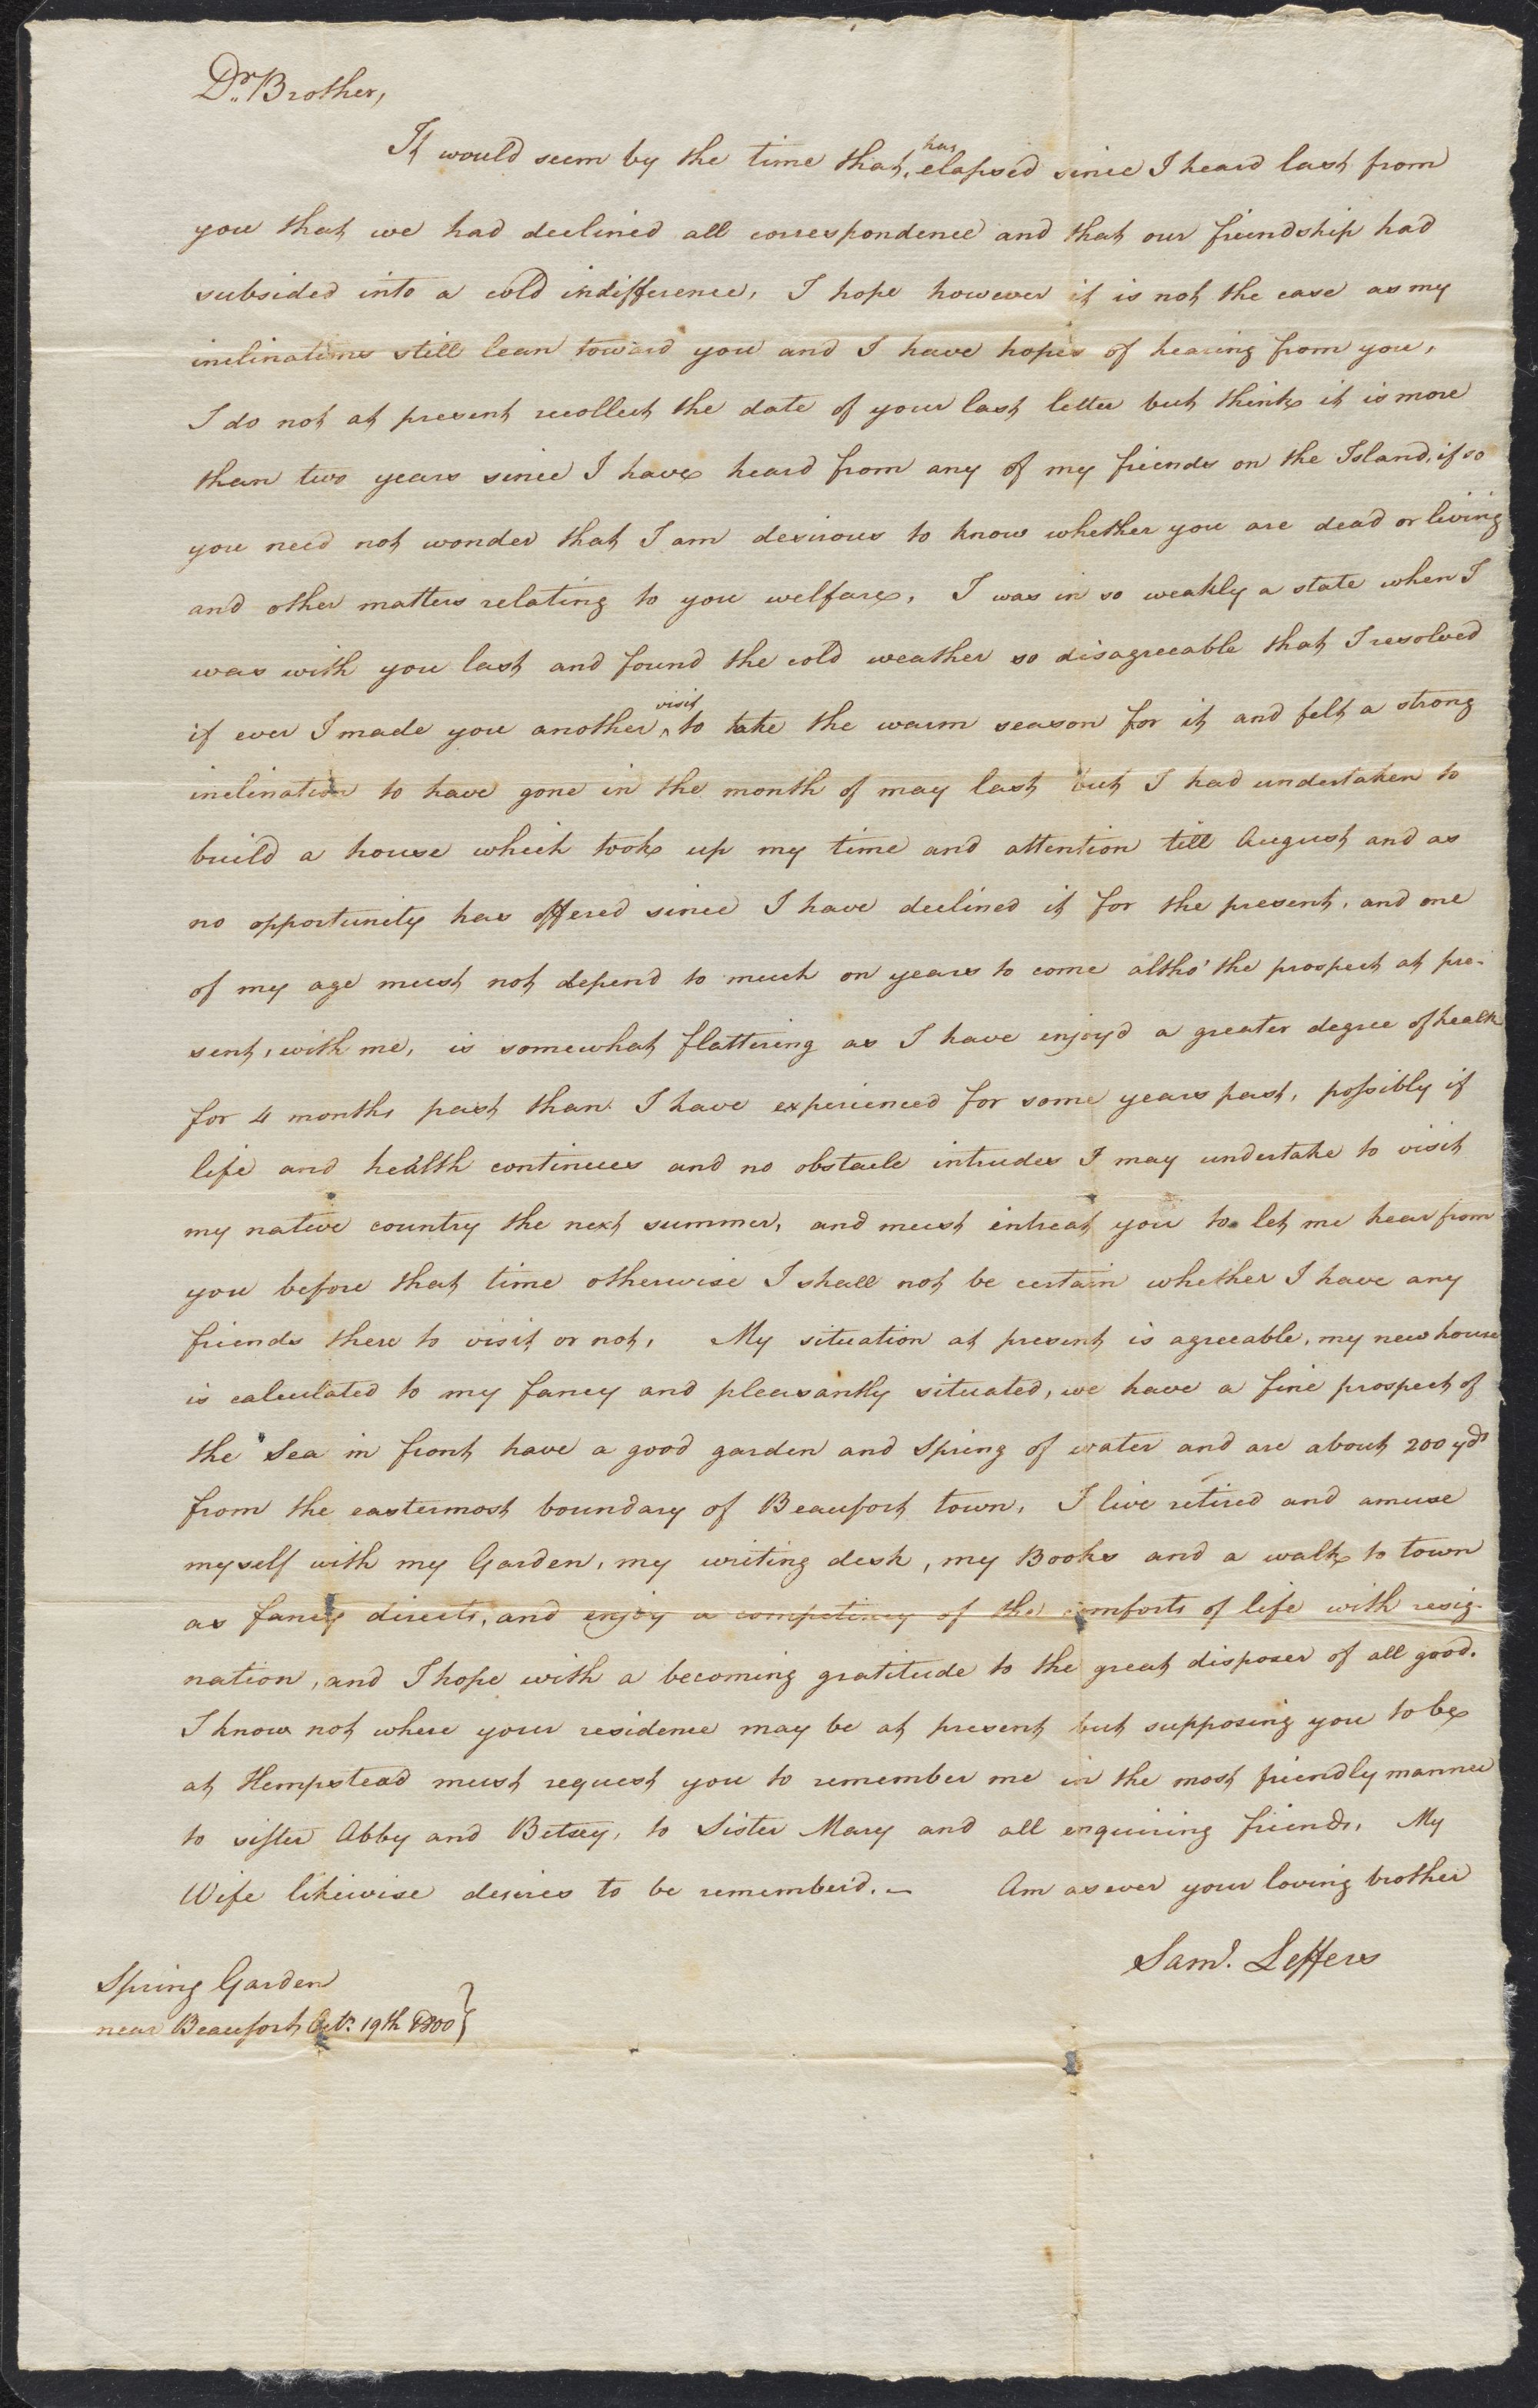 Dr. Brother,
It would seem by the time that has elapsed since I heard last from
you that we had declined all correspondence and that our friendship had
subsided into a cold indifference, I hope however it is not the case as my
inclinations still lean toward you and I have hopes of hearing from you,
I do not at present recollect the date of your last letter but think it is more
than two years since I have heard from any of my friends on the Island, if so
you need not wonder that I am desirous to know whether you are dead or living
and other matters relating to you welfare, I was in so weakly a state when I
was with you last and found the cold weather so disagreeable that I resolved
if ever I made you another visit to take the warm season for it and felt a strong
inclination to have gone in the month of may last but I had undertaken to
build a house which took up my time and attention till August and as
no opportunity has offered since I have declined it for the present, and one
of my age must not depend to much on years to come altho' the prospect at pre-
sent, with me, is somewhat flattering as I have enjoy'd a greater degree of health
for 4 months past than I have experienced for some years past, possibly if
life and health continues and no obstacle intrudes I may undertake to visit
my native country the next summer, and must intreat you to let me hear from
you before that time otherwise I shall not be certain whether I have any
friends there to visit or not, My situation at present is agreeable, my new house
is calculated to my fancy and pleasantly situated, we have a fine prospect of
the Sea in front have a good garden and Spring of water and are about 200 yds
from the eastermost boundary of Beaufort town, I live retired and amuse
myself with my Garden, my writing desk, my Books and a walk to town
as fancy directs, and enjoy a competency of the comforts of life with resig-
nation, and I hope with a becoming gratitude to the great disposer of all good.
I know not where your residence may be at present but supposing you to be
at Hempstead must request you to remember me in the most friendly manner
to sister Abby and Betsey, to Sister Mary and all enquiring friends, My
Wife likewise desires to be rememberd. - Am as ever your loving brother
Saml. Leffers
Spring Garden
near Beaufort Octr. 19th 1800